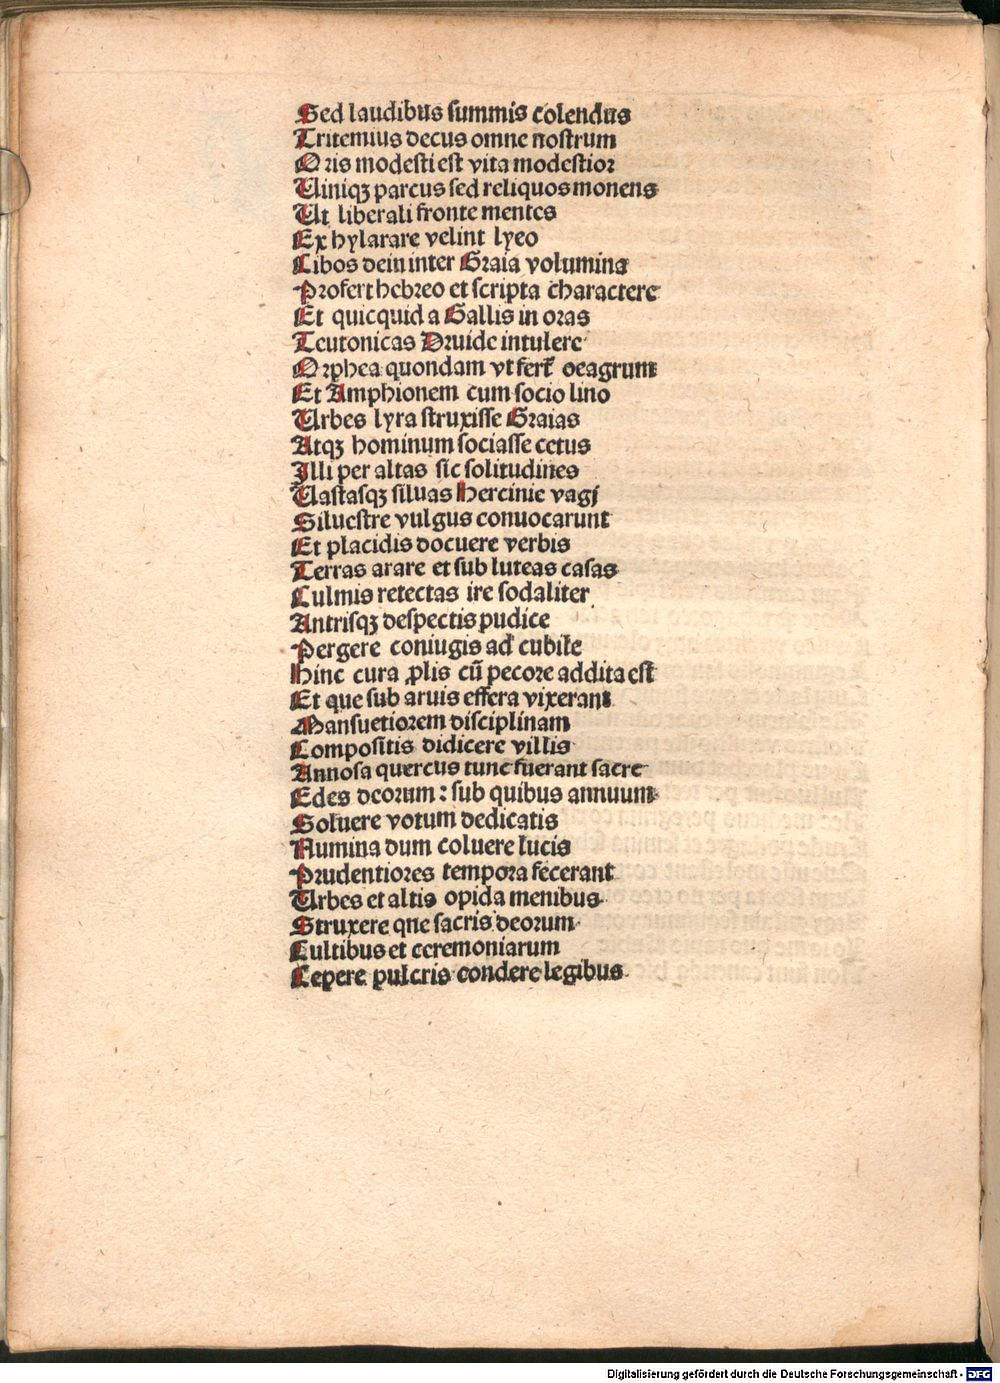 Sed laudibus summis colendus
Tritemius decus omne nostrum
Oris modesti est vita modestior
Uiniqꝫ parcus sed reliquos monens
Ut liberali fronte mentes
Ex hylarare velint lyeo
Libos dein inter Graia volumina
Profert hebreo et scripta charactere
Et quicquid a Gallis in oras
Teutonicas Druide intulere
Orphea quondam vt fert̉ oeagrum
Et Amphionem cum socio lino
Urbes lyra struxisse Graias
Atqꝫ hominum sociasse cetus
Illi per altas sic solitudines
Uastasqꝫ siluas Hercinie vagi
Siluestre vulgus conuocarunt
Et placidis docuere verbis
Terras arare et sub luteas casas
Culmis retectas ire sodaliter
Antrisqꝫ despectis pudice
Pergere coniugis ad cubile
Hinc cura ꝓlis cū pecore addita est
Et que sub aruis effera vixerant
Mansuetiorem disciplinam
Compositis didicere villis
Annosa quercus tunc fuerant sacre
Edes deorum: sub quibus annuum
Soluere votum dedicatis
Numina dum coluere lucis
Prudentiores tempora fecerant
Urbes et altis opida menibus
Struxere qne sacris deorum
Cultibus et ceremoniarum
Cepere pulcris condere legibus
Digitalisierung gefördert durch die Deutsche Forschungsgemeinschaft - DFG